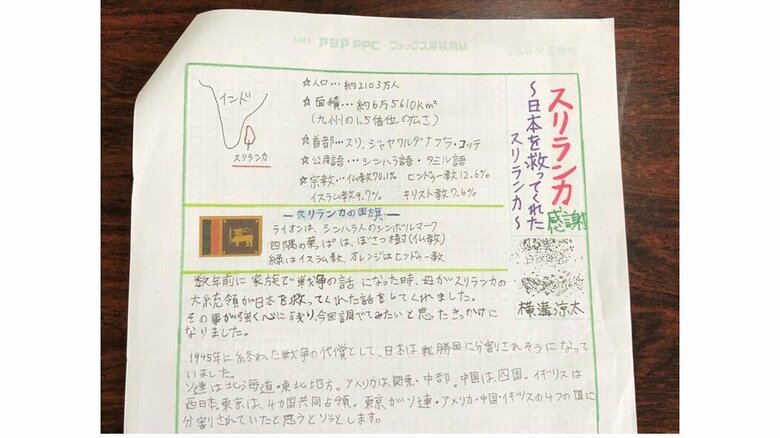 アジアPPC
インド
スリランカ
☆人口…約2103万人
☆面積…約6万5610km²
(九州の1.5倍位の広さ)
☆首都…スリ、ジャヤワルダナプラ・コッテ
☆公用語…シンハラ語・タミル語
☆宗教…仏教70.1% ヒンドゥー教12.6%
イスラム教9.7% キリスト教7.6%
スリランカ
~日本を救ってくれた
スリランカ~
感謝
横溝涼太
ースリランカの国旗ー
ライオンは、シンハラ人のシンボルマーク
四隅の葉っぱは、ぼさつ樹(仏教)
緑はイスラム教、オレンジはヒンドゥー教
数年前に家族で戦争の話になった時、母がスリランカの
大統領が日本を救ってくれた話をしてくれました。
その事が強く心に残り、今回調べてみたいと思ったきっかけに
なりました。
1945年に終わった戦争の代償として、日本は戦勝国に分割されそうになって
いました。
ソ連は北海道・東北地方。アメリカは、関東・中部。中国は、四国。イギリスは
西日本、東京は、4カ国共同占領。東京がソ連・アメリカ・中国・イギリスの4つの国に
分割されていたと思うとゾッとします。